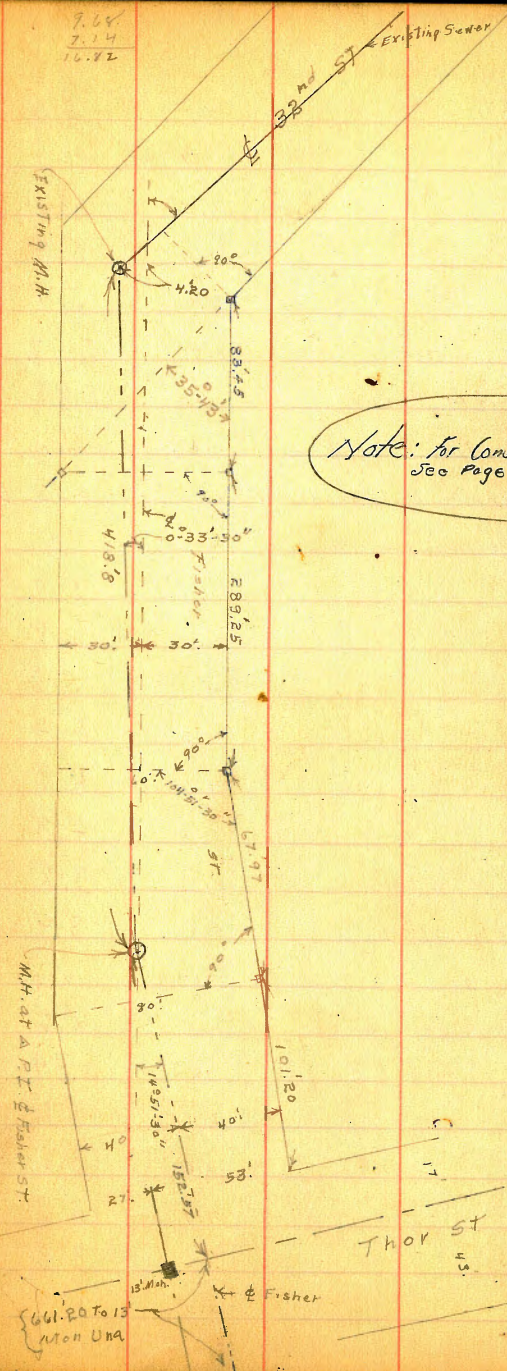 9.68
7.14
16.82
Existing Sewer
32nd ST
Existing M.H.
90°
4.20
83.45
35°-43'
Note: For
See Page
90°
0°-33'-30"
Fisher
418.8
289.25
30'
30'
90°
60'
104°-51'-30"
67.97
St.
90°
M.H. at Δ P.I ₵ Fisher St.
80'
101.20
14°51'-30"
40'
40
152.57
53'
17
27
Thor St
43
13' Mon.
₵ Fisher
661.20 To 13'
Mon Una